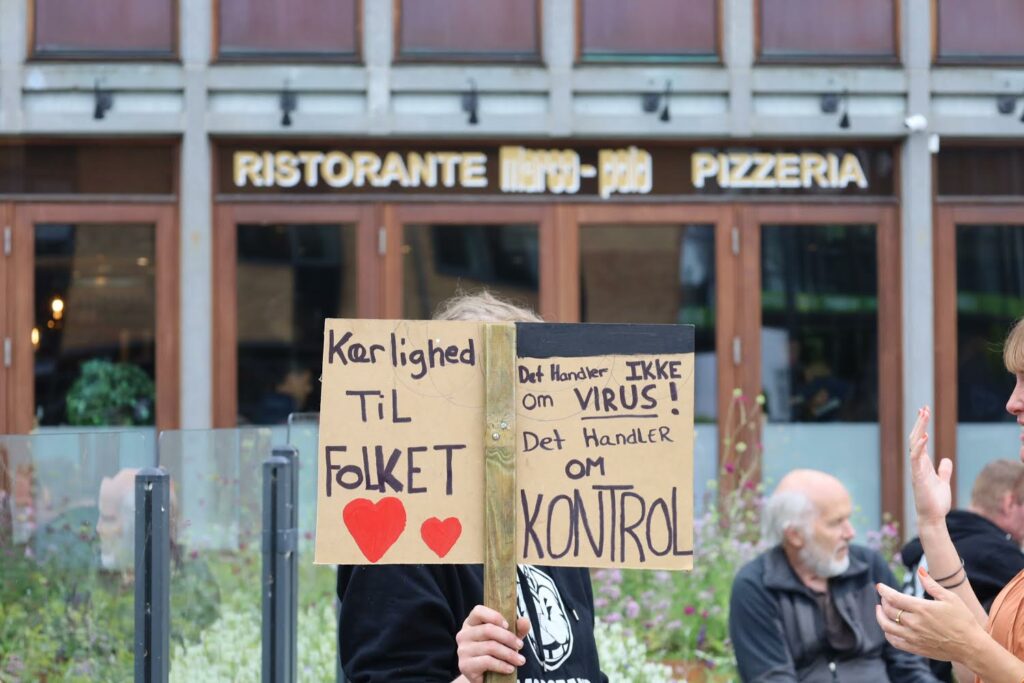 RISTORANTE Marco-polo PIZZERIA
Kærlighed
TiL
FOLKET
Det Handler IKKE
om VIRUS!
Det HandLER
OM
KONTROL